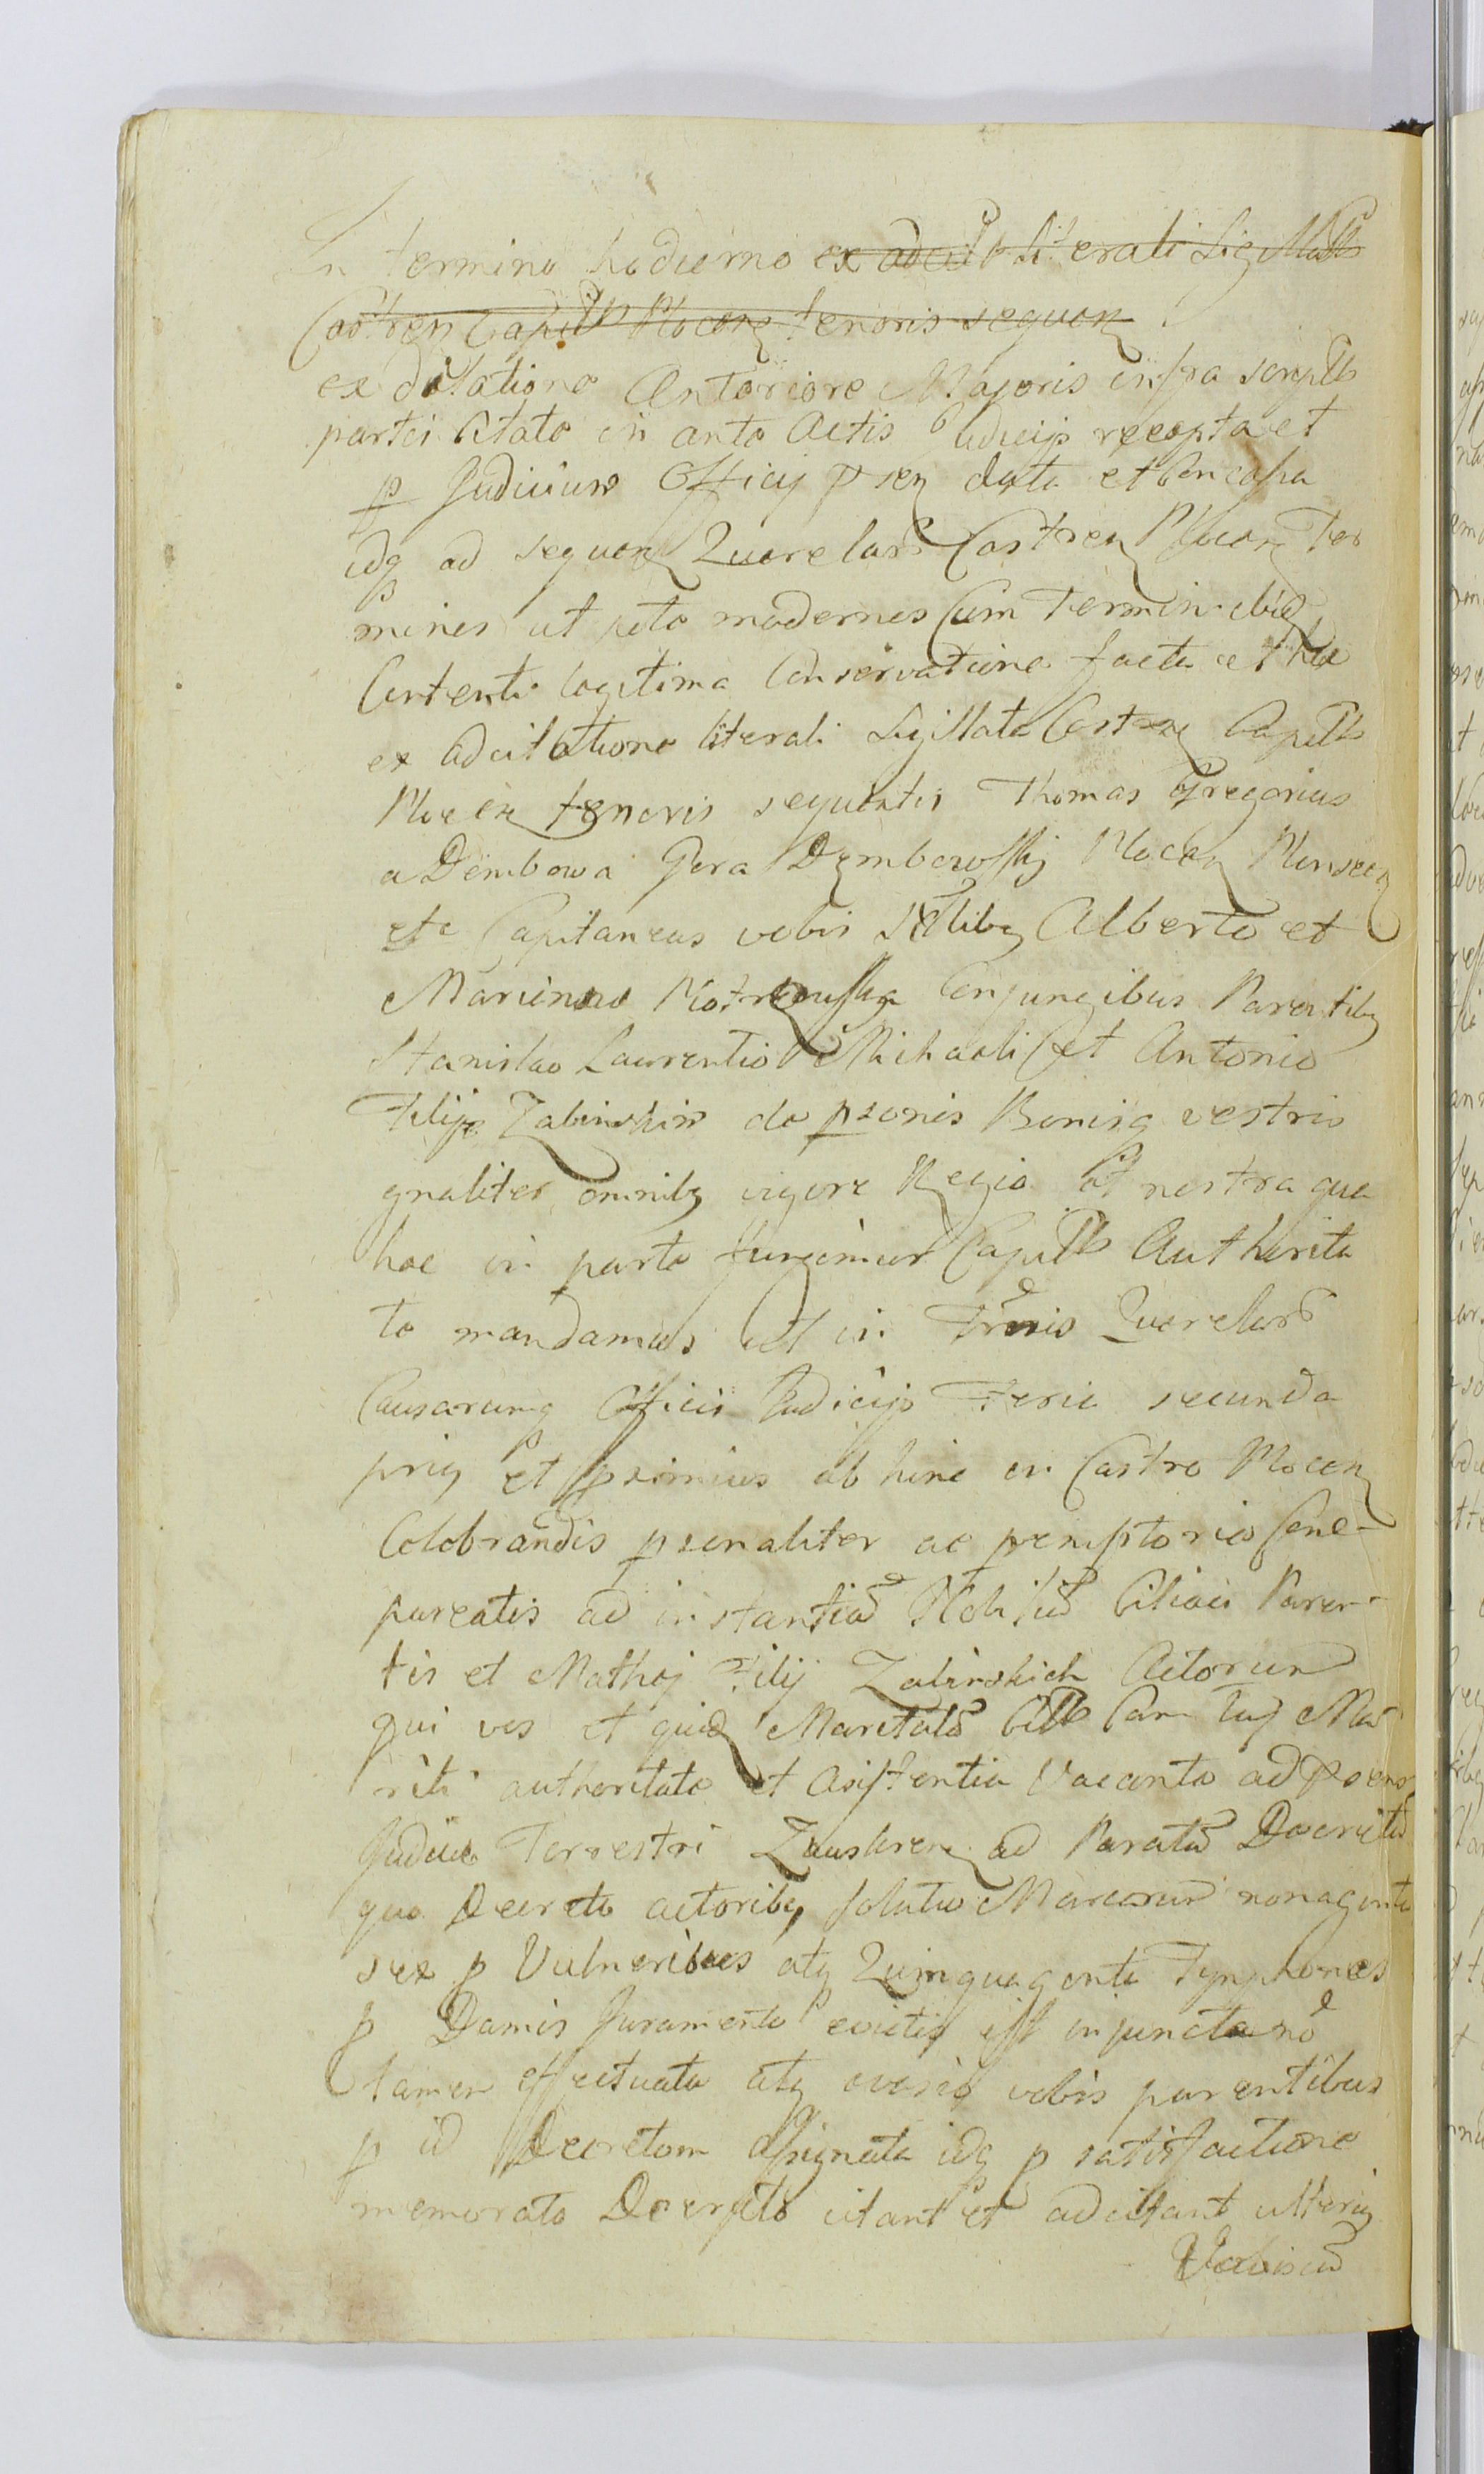 In termino hodierno ex adcit literali Sigillatt
Castren Capittli Plocen tenoris sequen
ex dilatione Anteriore Majoris infra scriptt
parti Citate in ante Actis Judicijs recepta et
p Judicium Officij psen data et concessa
idq ad sequen Querelar Castren Plocen Ter
minos ut pote modernos Cum Termin ibid
Contenti legitima Conservatione facta et hac
ex adcitatione literali Sigillata Castren Capittli
Plocen tenoris sequentis Thomas Gregorius
a Dembowa Gora Dembowskij Plocen Plonscen
etc Capitaneus vobis Nbilibq Alberto et
Marianna Piotrowska Conjungibus Parentibq
Stanislao Laurentio Michaeli et Antonio
Filijs Zabinskim de psonis Bonisq vestris
gnaliter omnibq vigore Regia et nostra qua
hac in parte fungimur Capittli Authorita
te mandamus ut in Trmis Querelar
Causarumq Officii Judicijs Feria secunda
prig et pximius ab hinc in Castro Plocen
Celebrandis psonaliter ac peremptorie Com-
pareatis ad instantia Nobiliu Paren-
tis et Mathej Filij Zabinskich Actorum
qui vos et quid Maritale Cum tuj Ma
riti authoritate et Assistentia Vacante ad psens
Judicio Terrestri Zauskrzen ad Parata Decretu
quo Decreto actoribq solutio Marcarum nonaginta
sex p Vulneribus atq Quinquaginta Tymphones
p Damis Juramento evictis est injuncta no
tamen effectuata atq evasio vobis parentibus
p id Decretum Assignata idq p satisfactione
memorato Decreto citant et adcitant ulterig
Vobiscu